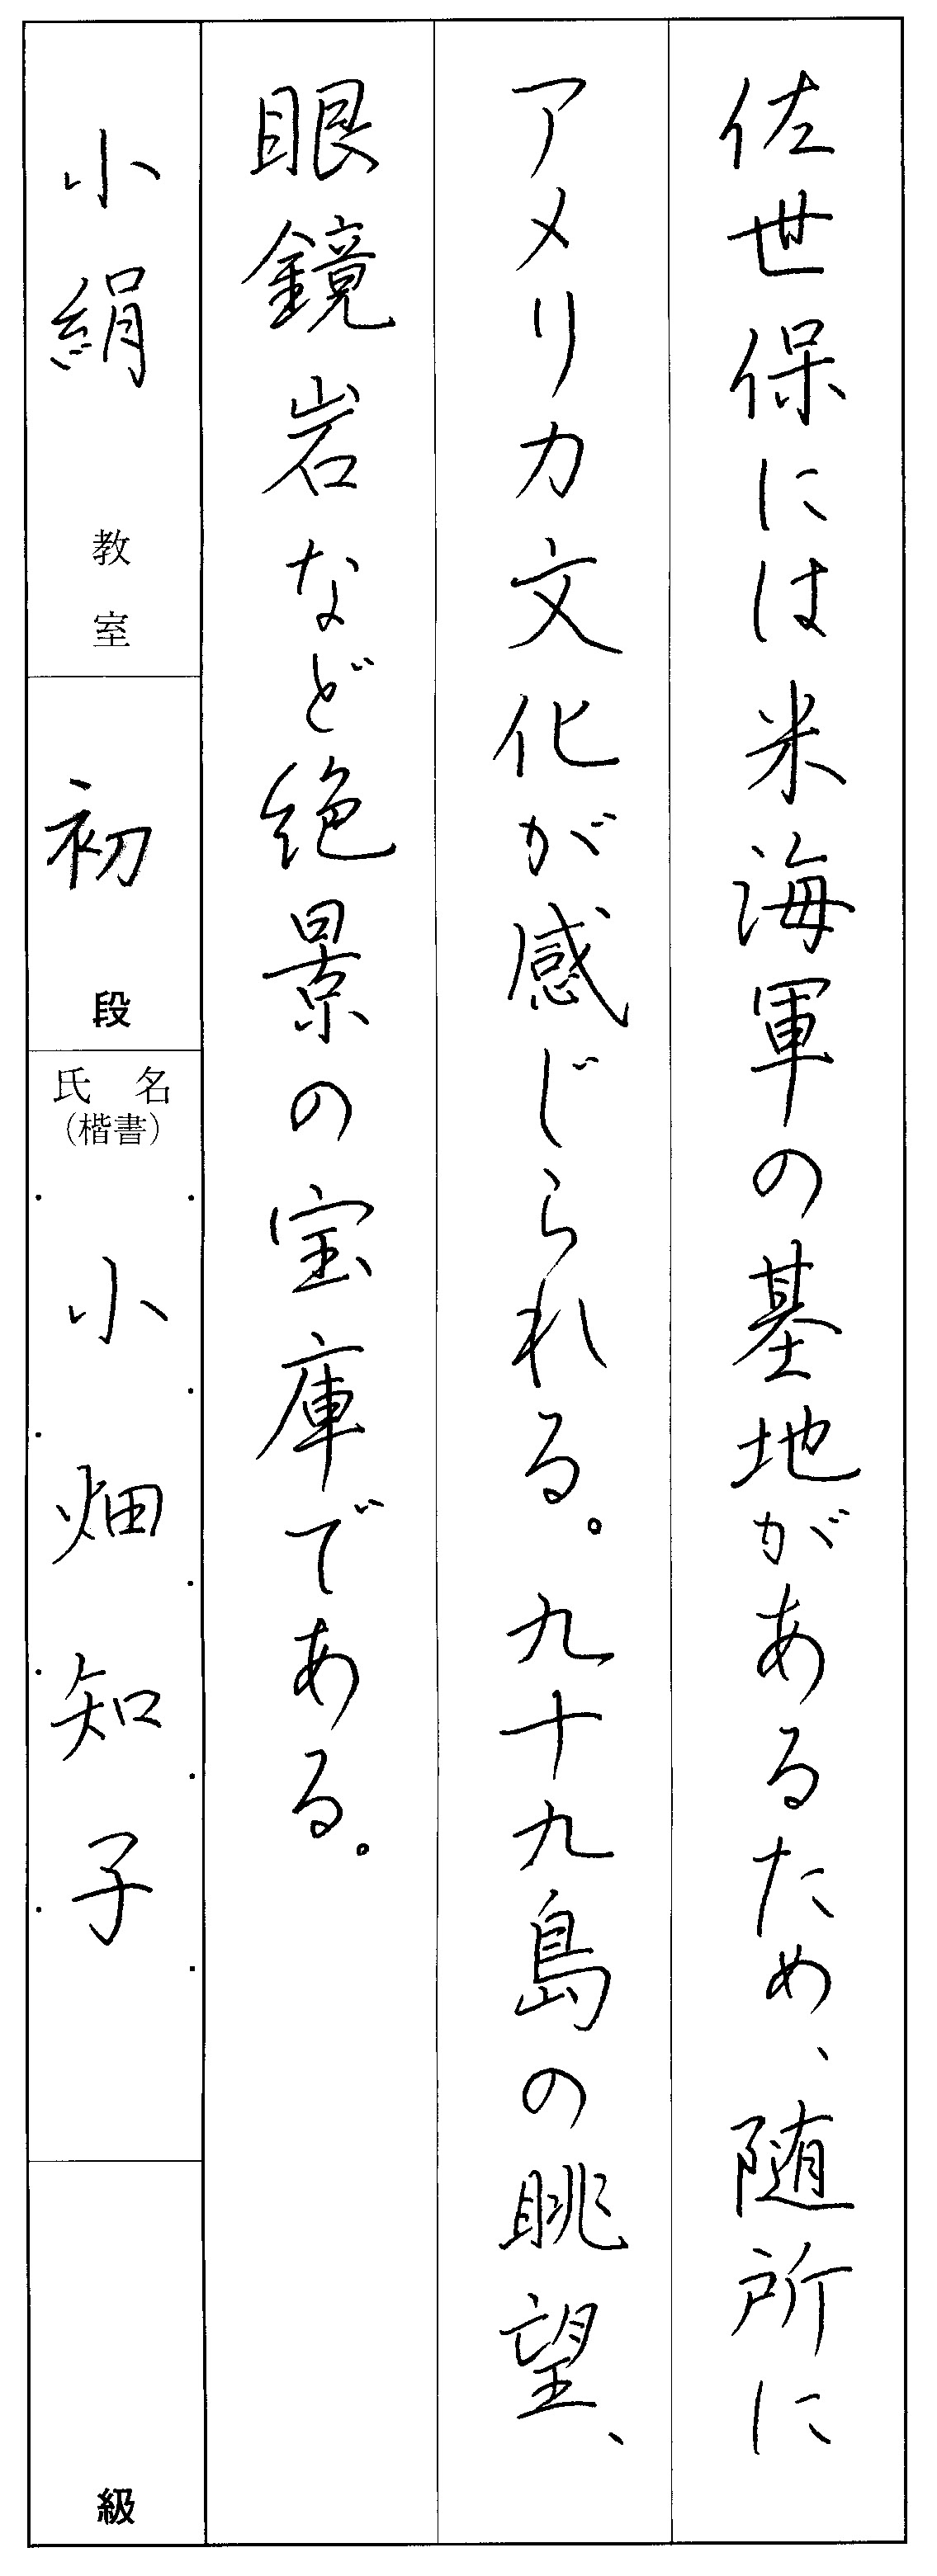 佐世保には米海軍の基地があるため、随所に
アメリカ文化が感じられる。九十九島の眺望、
眼鏡岩など絶景の宝庫である。
小絹 教室
初 段
氏名
(楷書)
小畑知子
級